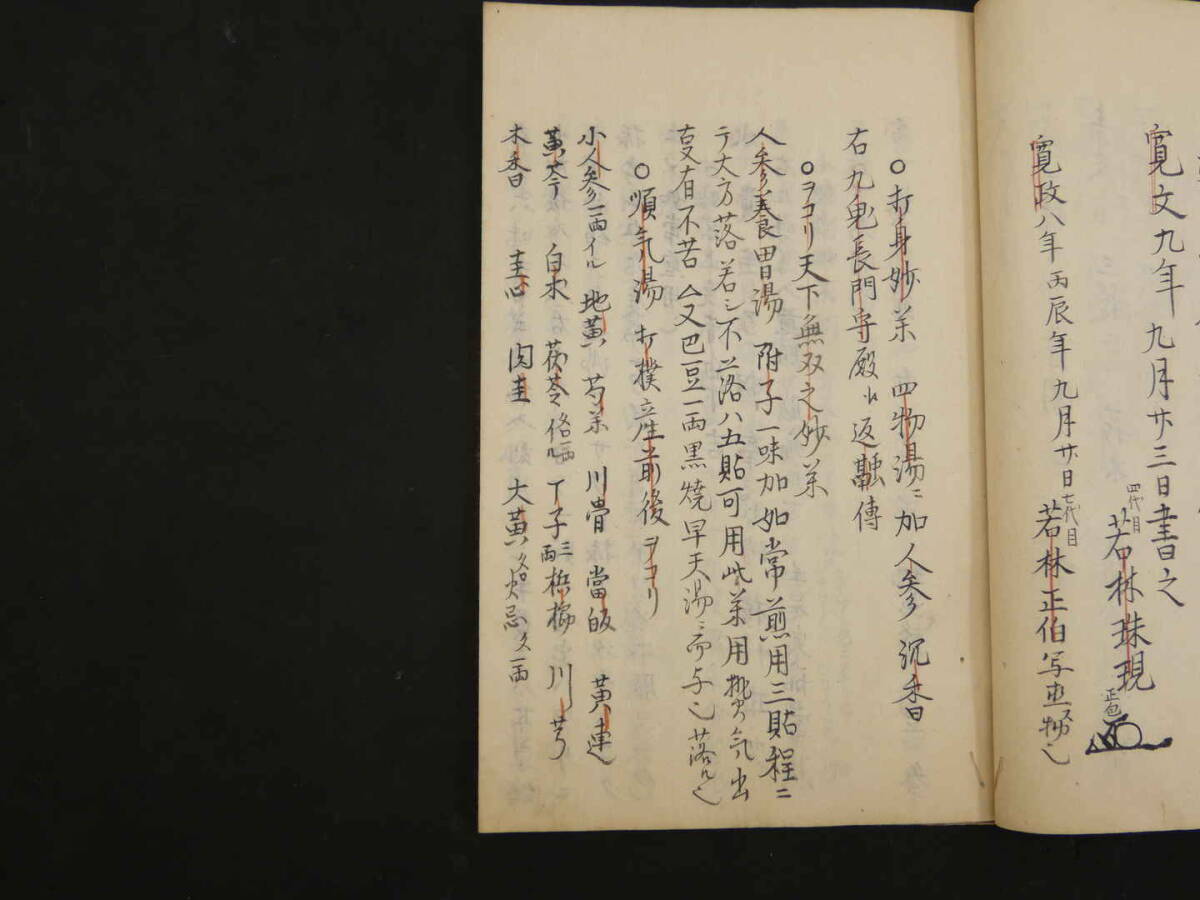 寛文九年 九月廿三日書之
四代目
若林珠現
正包
寛政八年 丙辰年 九月廿日
七代目
若林正伯写
○打身妙薬 四物湯ニ加人参沉香
右九鬼長門守殿 返 傳
○ヲコリ天下無双之妙薬
人参養胃湯 附子一味加如常煎用三貼程ニ
テ大方落若シ不落ハ五貼可用此薬用 気出
吏有不苦 又巴豆一両黒焼早天湯ニ而与之落ル也
○順気湯 打撲産前後ヲコリ
小人参一両イル 地黄 芍薬 川骨 當皈 黄連
黄芩 白朮 茯苓 丁子三両 梹榔 川芎
木香 桂心 肉桂 大黄 一両